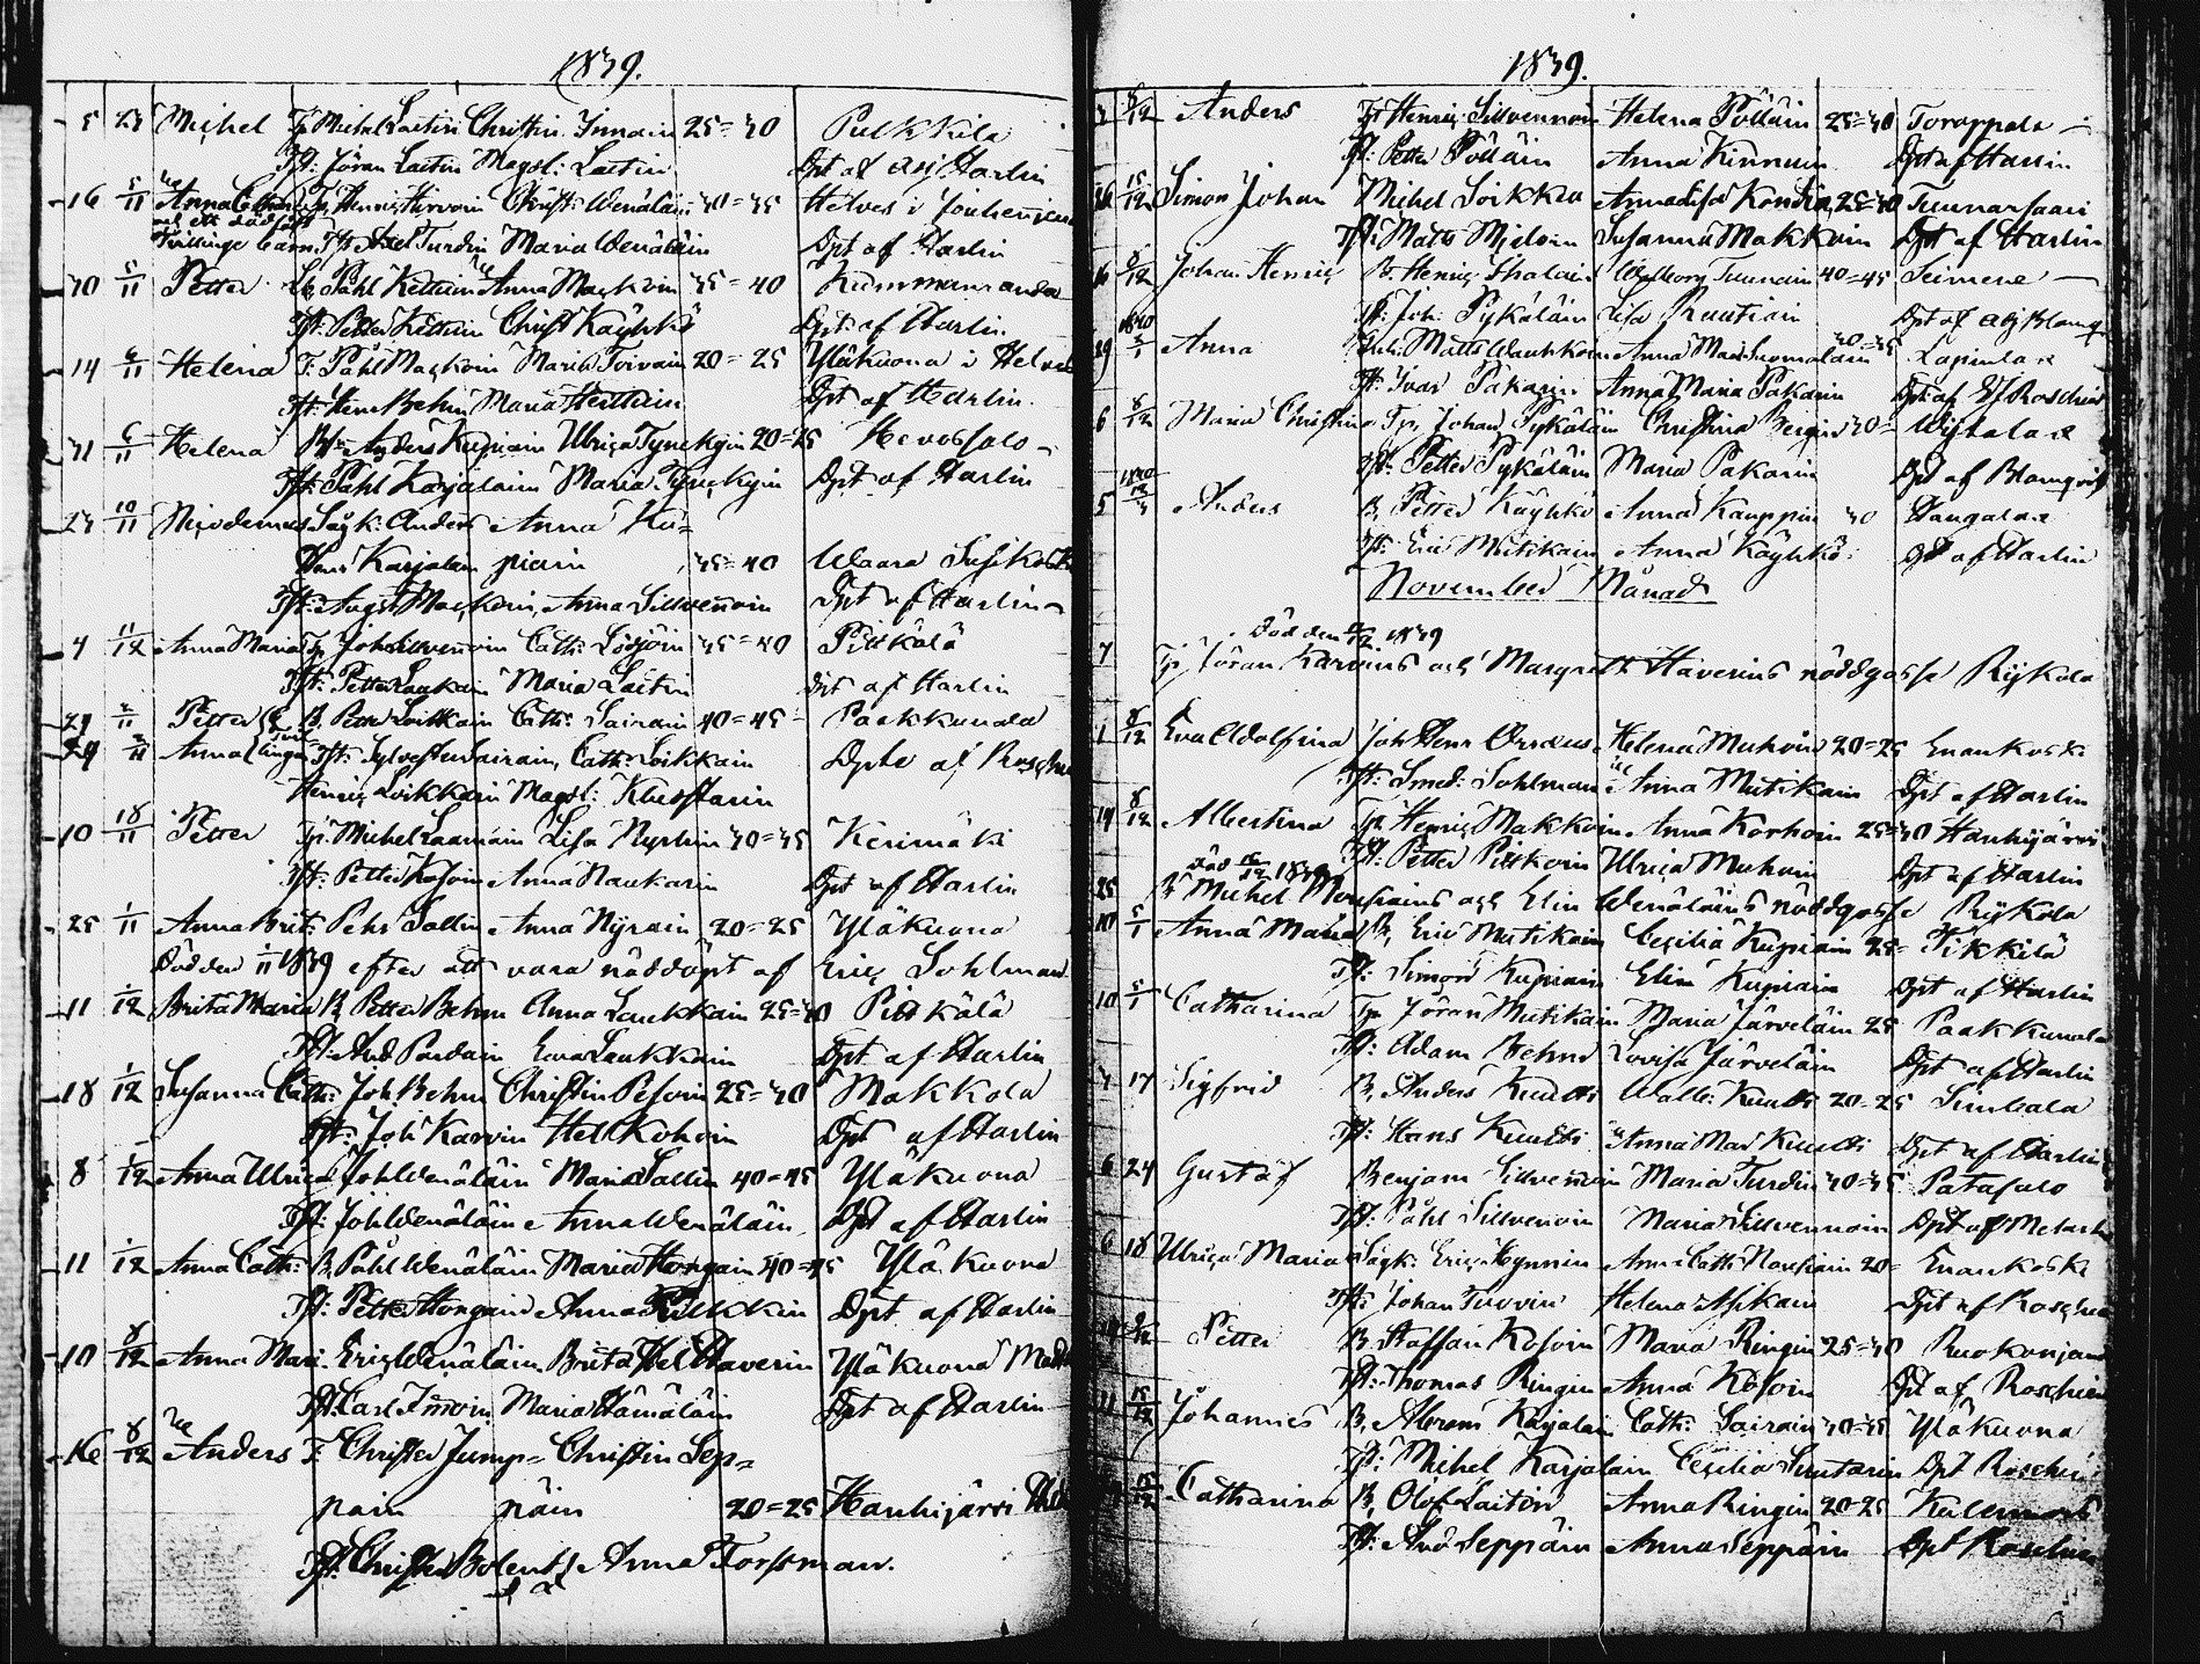 1839.
5 23 Michel Tp Michel Laitin Christin Innain 25=30 Pulkkila
Tft: Jöran Laitin Magdl: Laitin Dpt af Harlin
16 5/11 Anna Cathar Tp, Henric Hirvoin Christ: Wenäläin 30=35 Helves i
och ett dödfödt
Tvillinge barn Tft Axel Turdin Maria Wenäläin Dpt af Harlin
30 5/11 Petter Påhl Kettuin Anna Mackoin 35=40 Kummunranda
Tft: Petter Kettuin Christ Käyhkö Dpt: af Harlin.
14 6/11 Helena T. Påhl Mackoin Maria Toivain 20=25 Yläkuona i Helves
Tft: Henr Behm Maria Dpt af Harlin.
31 6/11 Helena Anders Kupiain Ulrica Tynckyin 20=25 Hevossalo
Tft: Påhl Karjalain Maria Tynckyin Dpt af Harlin
23 10/11 Nicodemus Sågk: Anders Anna Ku=
Hans Karjalain piain 35=40 Waara
Tft: August Mackoin, Anna Sillvennoin Dpt af Harlin
4 11/12 Anna Maria Tp Joh Sillvennoin Cath: 35=40 Pitkälä
Tft: Petter Laukain Maria Laitin Dpt af Harlin
29 2/11 Petter B. Petter Loikkain Cath: Sairain 40=45 Paakkunala
29 2/11 Anna Tvillingar Tft: Sylvester Sairain, Cath: Loikkain Dpte af
Henric Loikkain Magdl: Kluostarin
10 18/11 Petter Tp. Michel Laamain Lisa Nyrhin 40=45 Kerimäki
Tft: Petter Kosoin Anna Naukarin Dpt af Harlin
25 1/11 Anna Brit: Pehr Sallin Anna Nyrain 20=25 Yläkuona
Död den 1839 efter att vara näddöpt af Eric Sohlman
11 1/12 Brita Maria B, Petter Behm Anna Laukkain 25=30 Pitkälä
Tft: And Pardain Eva Laukkain Dpt af Harlin
18 1/12 Susanna Cath: Joh. Behm Christin Pesoin 25=30 Makkola
Tft: Joh Karvin Hel Kohoin Dpt af Harlin
8 1/12 Anna Ulrica Joh Wenäläin Maria Sallin 40=45 Yläkuona
Tft: Joh Wenäläin Anna Wenäläin Dpt af Harlin
11 1/12 Anna Cath: B, Påhl Wenäläin Maria Hongain 40=45 Yläkuona
Tft: Petter Hongain Anna Dpt af Harlin
10 8/12 Anna Mari Eric Wenäläin Brita Hel Haverin Yläkuona
Tft: Carl Immoin Maria Hämäläin Dpt af Harlin
16 8/12 Anders T. Christer Jump= Christin Sep=
pain päin 20=25 Hanhijärvi
Tft: Christer Anna Forsman.
1839.
8/12 Anders Tp Henric Sillvennoin Helena Pöllain 25=30 Toroppala
Tft: Petter Pöllain Anna Kinnuin Dpt af Harlin
16 15/12 Simon Johan Michel Soikka Anna Lisa Kondia 25=30 Tuunarsaari
Tft: Matts Susanna Makkoin Dpt af Harlin
16 8/12 Johan Henric B. Henric Walborg Tuunain 40=45 Seimene
Tft: Joh: Pykäläin Lisa Ruutiain Dpt af
1840
29 2/1 Anna Inh: Matts Wauhkoin Anna Mar Suomalain 40=45 Lapinlax
Tft: Ivar Pakarin Anna Maria Pakarin Dpt: af Roschier
6 8/12 Maria Christina Tp, Johan Pykäläin Christina 30= Wijkalax
Tft: Petter Pykäläin Maria Pakarin Dpt af Blomqvist
1840
5 Anders B, Petter Käyhkö Anna Kauppin 30 Haugalax
Tft: Eric Mutikain Anna Käyhkö Dpt af Harlin
November Månad
Död den 1839
7 Tp, Jöran Karvins och Margreth Haverins näddgosse Rykola
1 8/12 Eva Adolfina Joh Henr Orraeus Helena Muhoin 20=25 Enankoski
Tft: Smed: Sohlman Anna Mutikain Dpt af Harlin
14 8/12 Albertina Tp Henric Makkoin Anna Korhoin 25=30 Hanhijärvi
Tft: Petter Pitkoin Ulrica Muhoin Dpt af Harlin
Död 15/12 1839
25 B Michel och Elin Wenäläins näddgosse Rykola
10 5/1 Anna Maria B, Eric Mutikain Cecilia Kupiain 25= Tikkilä
Tft: Simon Kupiain Elin Kupiain Dpt af Harlin
10 5/1 Catharina Tp Jöran Mutikain Maria Järveläin 25 Paakkunala
Tft: Adam Behm Lovisa Järveläin Dpt af Harlin
17 Sigfrid B, Anders Kuutti Walb: Kuutti 20=25 Simbala
Tft: Hans Kuutti Anna Mar Kuutti Dpt af Harlin
6 24 Gustaf Benjam Sillvennoin Maria Turdin 40=45 Patasalo
Tft: Påhl Sillvennoin Maria Sillvennoin Dpt af
6 18 Ulrica Maria Sågk: Eric Hynnin Anna Cath: 20= Enankoski
Tft: Johan Tuovin Helena Asikain Dpt af Roschier
Petter B. Staffan Kosoin Maria Ringin 25=30 Ruokonjemi
Tft: Thomas Ringin Anna Kosoin Dpt af Roschier
11 15/12 Johannes B, Abram Karjalain Cath: Sairain 40=45 Yläkuona
Tft: Michel Karjalain Cecilia Suutarin Dpt Roschier
15/12 Catharina B, Olof Laitin Anna Ringin 20=25
Tft: And Seppäin Anna Seppäin Dpt Roschier